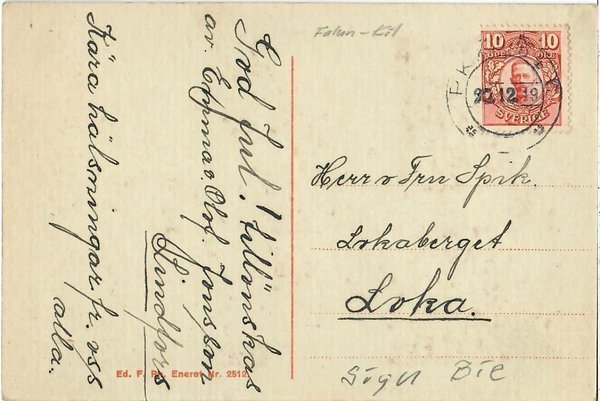 God Jul! tillönskas
av. Emma o Olof. Jonsson
Lindfors
Kära hälsningar fr. oss
alla.
Falun-Kil
10 10
SVERIGE
PK
22.12.19
Herr o Fru Spik.
Lokaberget
Loka.
Sign Bie
Ed. F. Eneret Nr. 2512